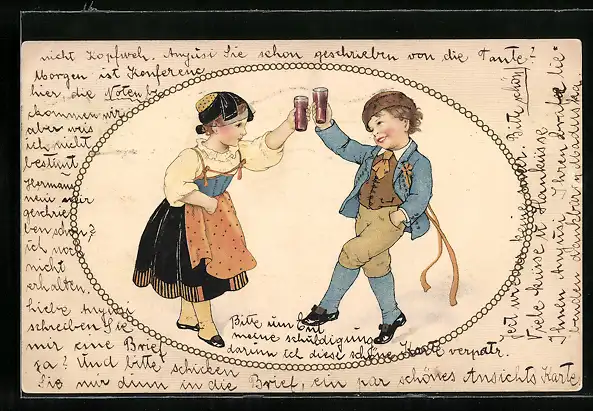 nicht Kopfweh. Angusi Sie schon geschrieben von die Tante?
Morgen ist Konferenz
hier, die Noten be
kommen wir
aber was
ich nicht
bestimt.
Hermann
nein mir
geschrie
ben schon?
ich noch
nicht
erhalten.
Liebe Angusi
schreiben Sie
mir eine Brief
ja? Und bitte schicken
Sie mir dann in die Brief, ein par schönes Ansichts Karte
Bitte um Ent
meine schuldigung
darum ich diese schöne Karte verpatz.
Bitte schön
Viele küsse u Handküsse
Ihnen Angusi Ihren